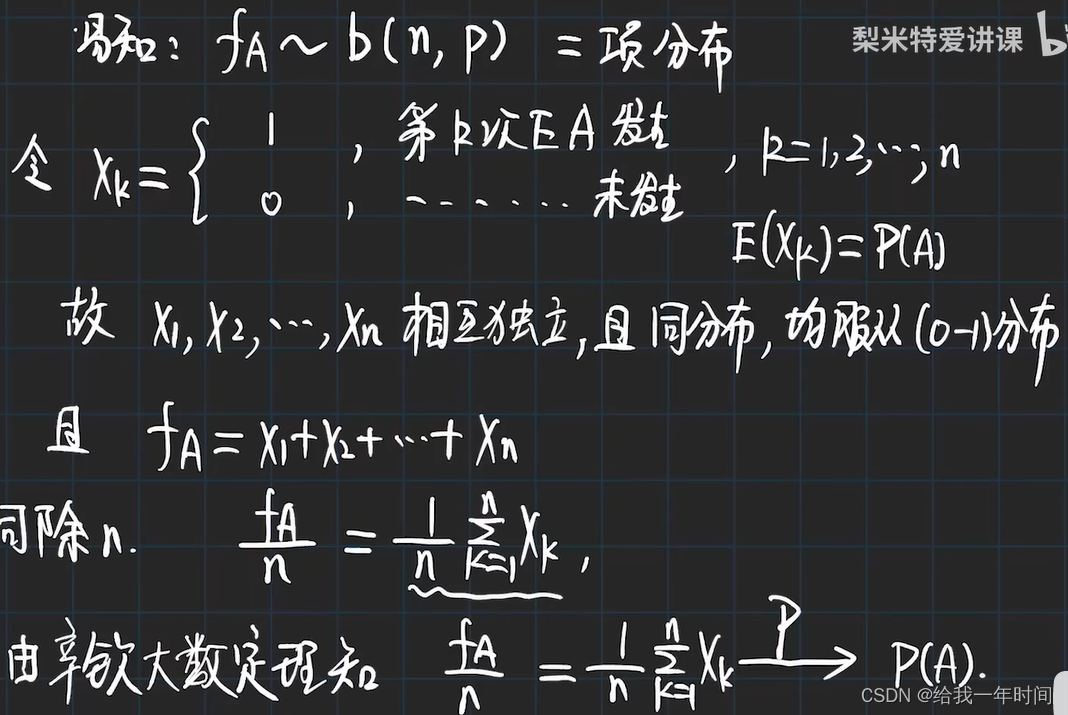 易知: f_A ~ b(n, p) 二项分布
梨米特爱讲课 b
令 X_k = { 1 , 第k次E A 发生 , k=1,2,…,n
0 , ------ 未发生
E(X_k)=P(A)
故 X_1, X_2, …, X_n 相互独立, 且同分布, 均服从(0-1)分布
且 f_A = X_1+X_2+…+X_n
同除n. f_A/n = 1/n ∑_{k=1}^{n} X_k ,
由辛钦大数定理知 f_A/n = 1/n ∑_{k=1}^{n} X_k —P→ P(A).
CSDN @给我一年时间